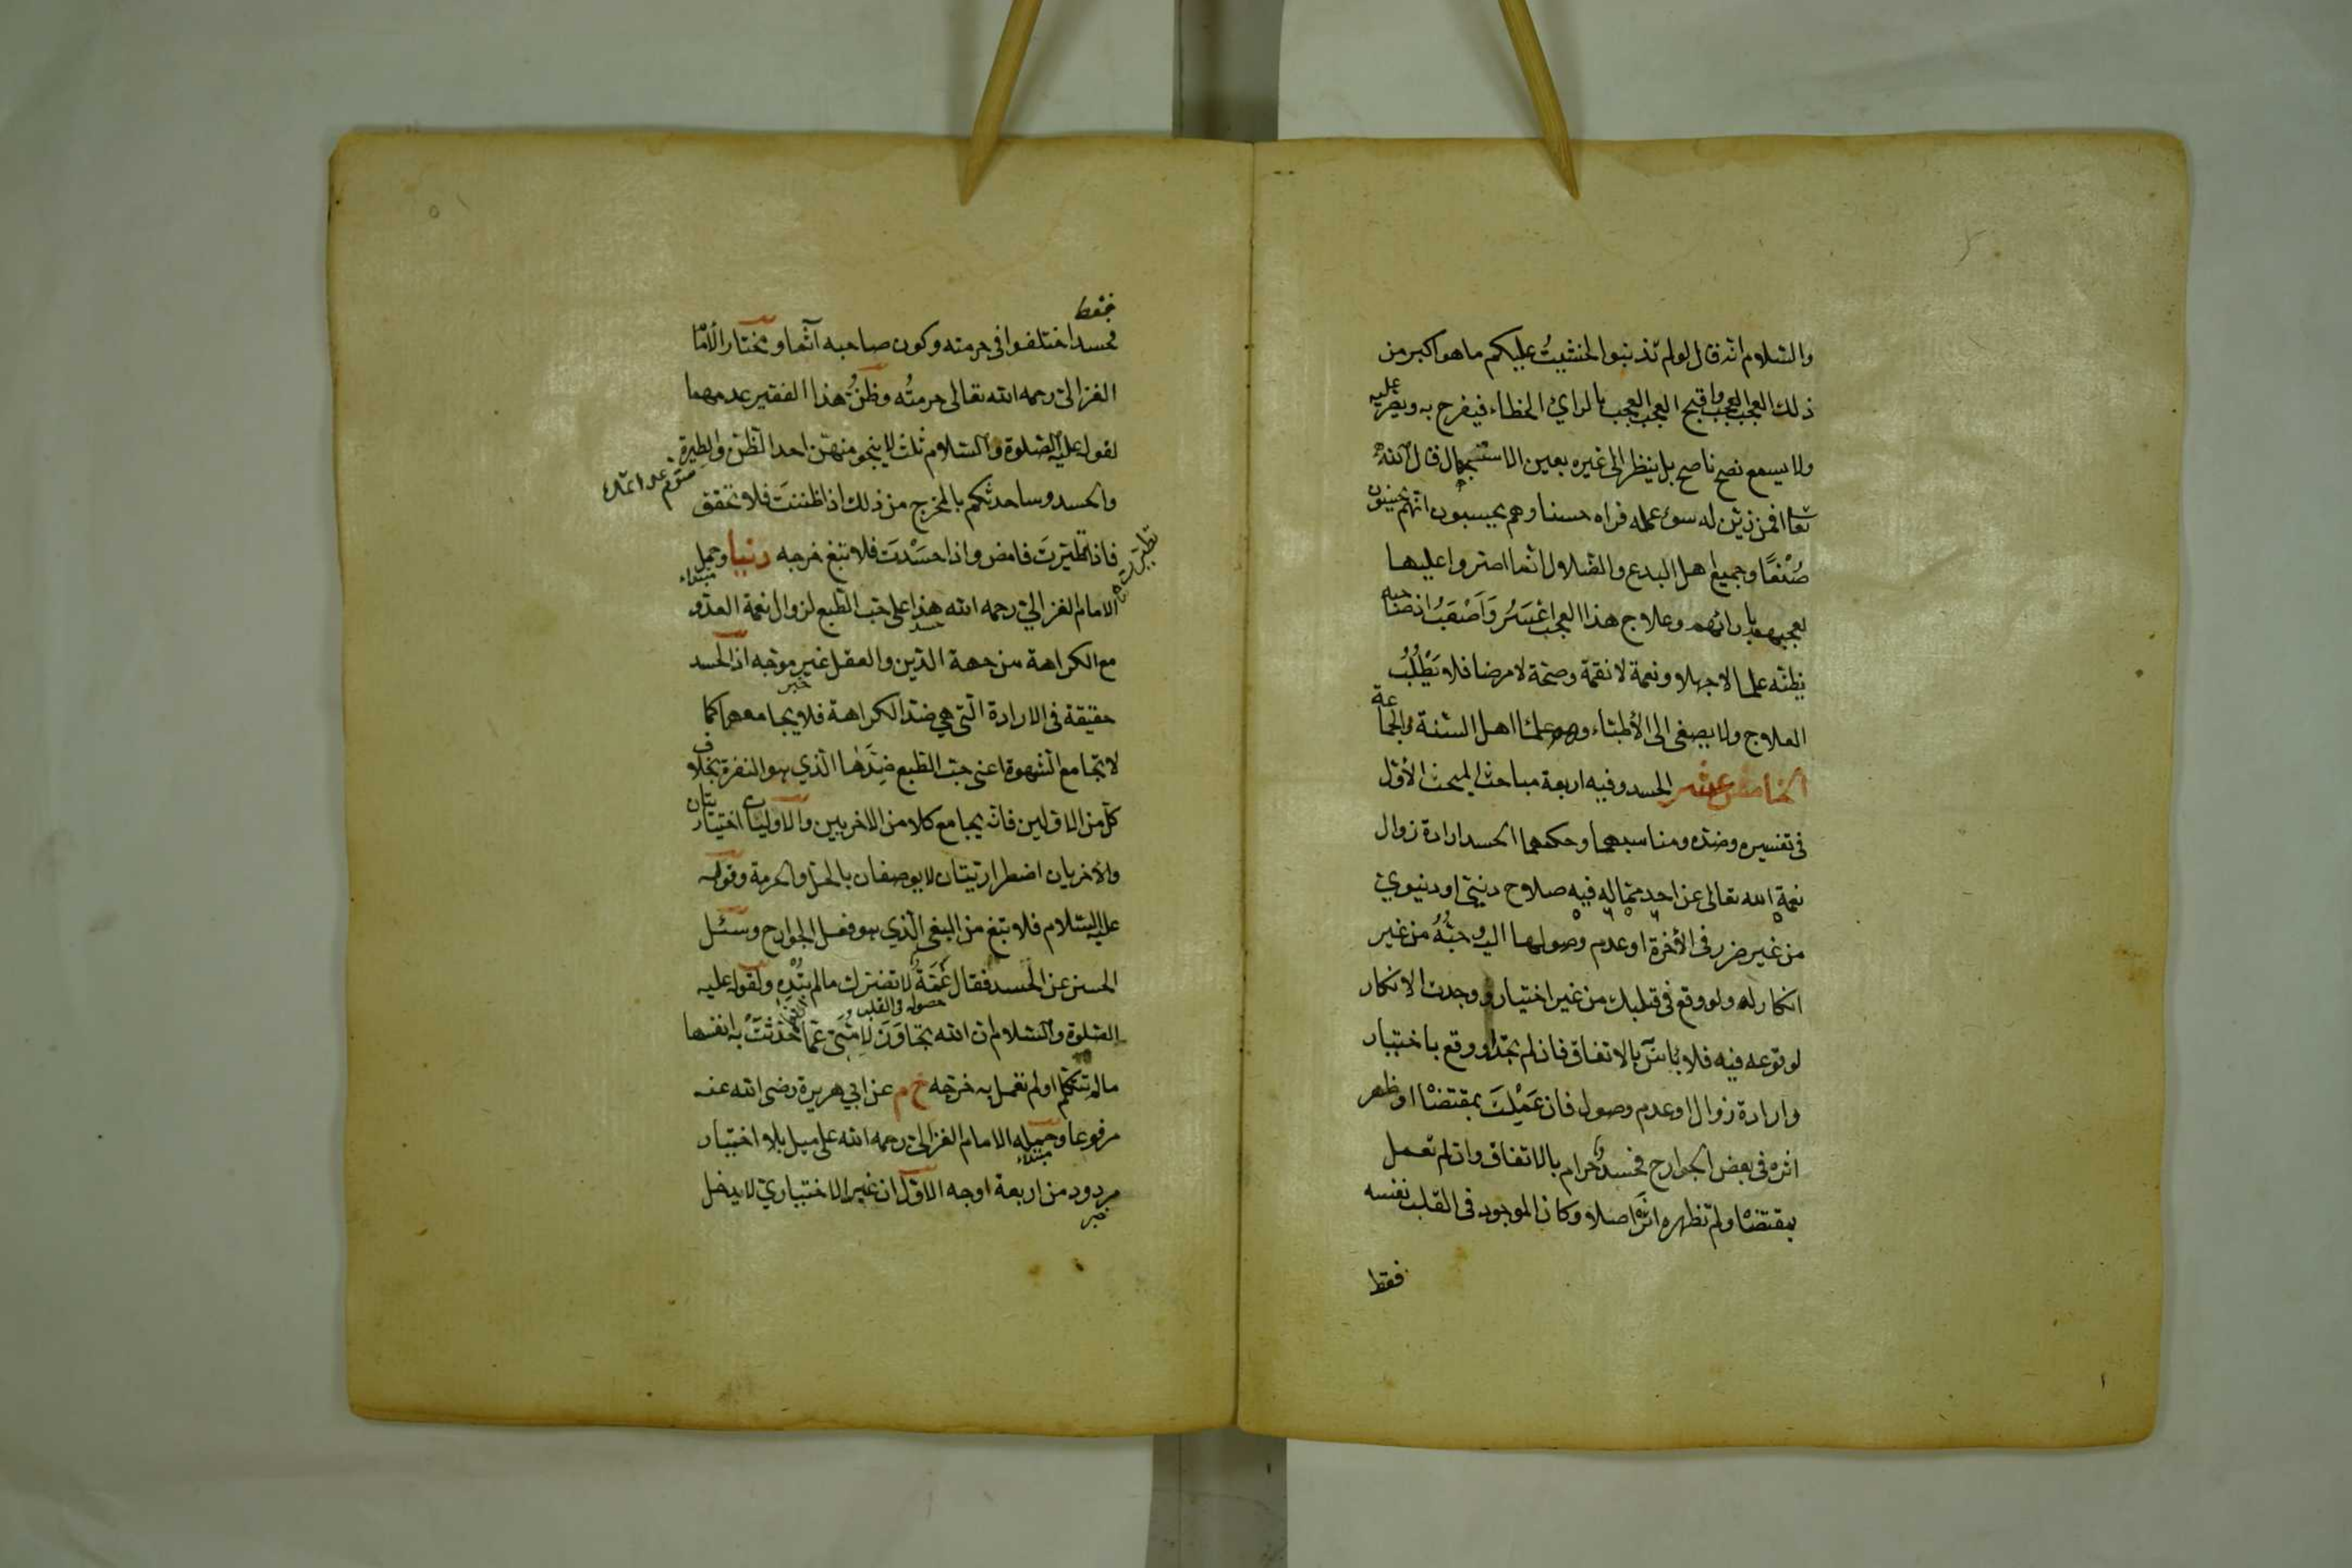 والسلام انه قال لو لم تذنبوا لخشيت عليكم ما هو اكبر من
ذلك العجب العجب واقبح العجب العجب بالراي الخطاء فيفرح به ويصر عليه
ولا يسمع نصح ناصح بل ينظر الى غيره بعين الاستجهال قال الله
تعا افمن زين له سوء عمله فراه حسنا وهم يحسبون انهم يحسنون
صُنْعًا وجميع اهل البدع والضلال انما اصروا عليها
لعجبهم بارائهم وعلاج هذا العجب اعسر وَاَصْعَبُ اذ صاحبه
يظنه علما لا جهلا ونعمة لا نقمة وصحة لا مرضا فلا يَطْلُبُ
العلاج ولا يصغى الى الأطباء وهم علماء اهل السنة والجماعة
الخامس عشر الحسد وفيه اربعة مباحث المبحث الأول
فى تفسيره وضده ومناسبهما وحكمهما الحسد ارادة زوال
نعمة الله تعالى عن احد مما له فيه صلاح دينى او دنيوي
من غير ضرر فى الأخرة او عدم وصولها اليه وحبُّهُ من غير
انكار له ولو وقع فى قلبك من غير اختيار ووجدت الانكار
لوقوعه فيه فلا بأس بالاتفاق فان لم تجد او وقع باختيار
وارادة زوال او عدم وصول فان عَمِلْتَ بمقتضا او ظهر
اثره فى بعض الجوارح فحسد وحرام بالاتفاق وان لم تعمل
بمقتضا ولم تظهره اثرَه اصلا وكان الموجود فى القلب نفسه
فقط
فقط
فحسد اختلفوا فى حرمته وكون صاحبه آثما ومختار الأمام
الغزالى رحمه الله تعالى حرمتُه وظنُّ هذا الفقير عدمهما
لقوله عليه الصلوة والسلام ثلث لا ينجو منهن احد الظن والطيرة
والحسد وساحدثكم بالمخرج من ذلك اذا ظننتَ فلا تحقق
فاذا تطيرتَ فامض واذا حسَدْتَ فلا تبغ خرجه دنيا وحمل
مبتداء
الامام الغزالي رحمه الله هذا على حب الطبع لزوال نعمة العدو
مع الكراهة من جهة الدين والعقل غير موجه اذ الحسد
خبر
حقيقة فى الارادة التى هى ضد الكراهة فلا يجامعهما كما
لا تجامع الشهوة اعنى حب الطبع ضِدَّهَا الذي هو النفرة بخلاف
كل من الاولين فانه يجامع كلا من الاخريين والاوليان اختياريتان
والأخريان اضطراريتان لا يوصفان بالحل والحرمة وقوله
عليه السلام فلا تبغ من البغى الذي هو فعل الجوارح وسئل
الحسن عن الحسد فقال غمّة لا تضرك ما لم تُبْدِه ولقوله عليه
الصلوة والسلام ان الله تجاوَزَ لِاُمَّتى عمّا حدّثَتْ به انفسها
ما لم تتكلم او لم تعمل به خرجه خ م عن ابي هريرة رضى الله عنه
مرفوعا وحمله الامام الغزالى رحمه الله على ميل بلا اختيار
مبتداء
مردود من اربعة اوجه الاول ان غير الاختياري لا يدخل
خبر